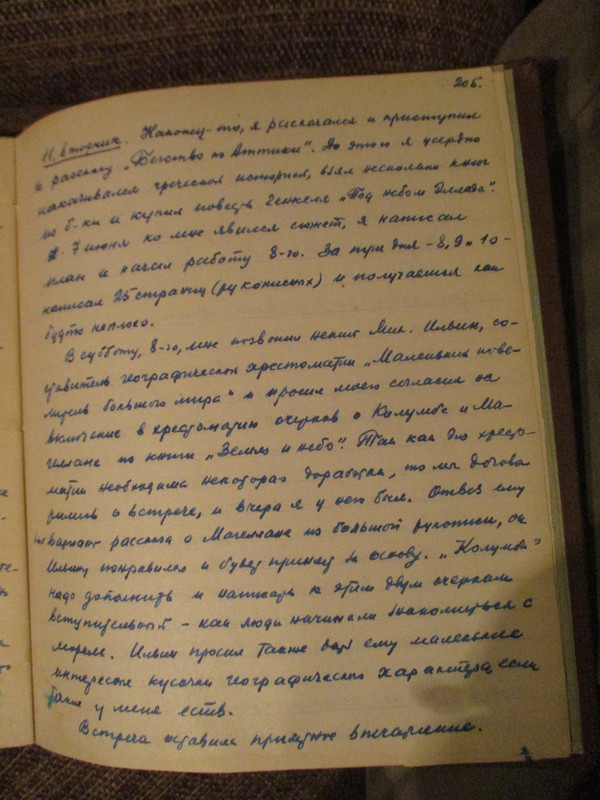 205.
11, вторник. Наконец-то, я раскачался и приступил
к рассказу „Бегство из Аттики". До этого я усердно
накачивался греческой историей, взял несколько книг
из б-ки и купил повесть Генкеля „Под небом Эллады".
7 июня ко мне явился сюжет, я написал
план и начал работу 8-го. За три дня – 8, 9 и 10 –
написал 25 страниц (рукописных) и получается как
будто неплохо.
В субботу, 8-го, мне позвонил некий Мих. Ильин, со-
ставитель географической хрестоматии „Маленький
большого мира" и просил моего согласия на
включение в хрестоматию очерков о Колумбе и Ма-
геллане из книги „Земля и небо". Так как для хресто-
матии необходима некоторая доработка, то мы догово
рились о встрече, и вчера я у него был. Отвез ему
вариант рассказа о Магеллане из большой рукописи, он
Ильину понравился и будет принят за основу. „Колумба"
надо дополнить и написать к этим двум очеркам
вступительный – как люди начинали знакомиться с
морем. Ильин просил также дать ему маленькие
интересные кусочки географического характера, если
такие у меня есть.
Встреча оставила приятное впечатление.